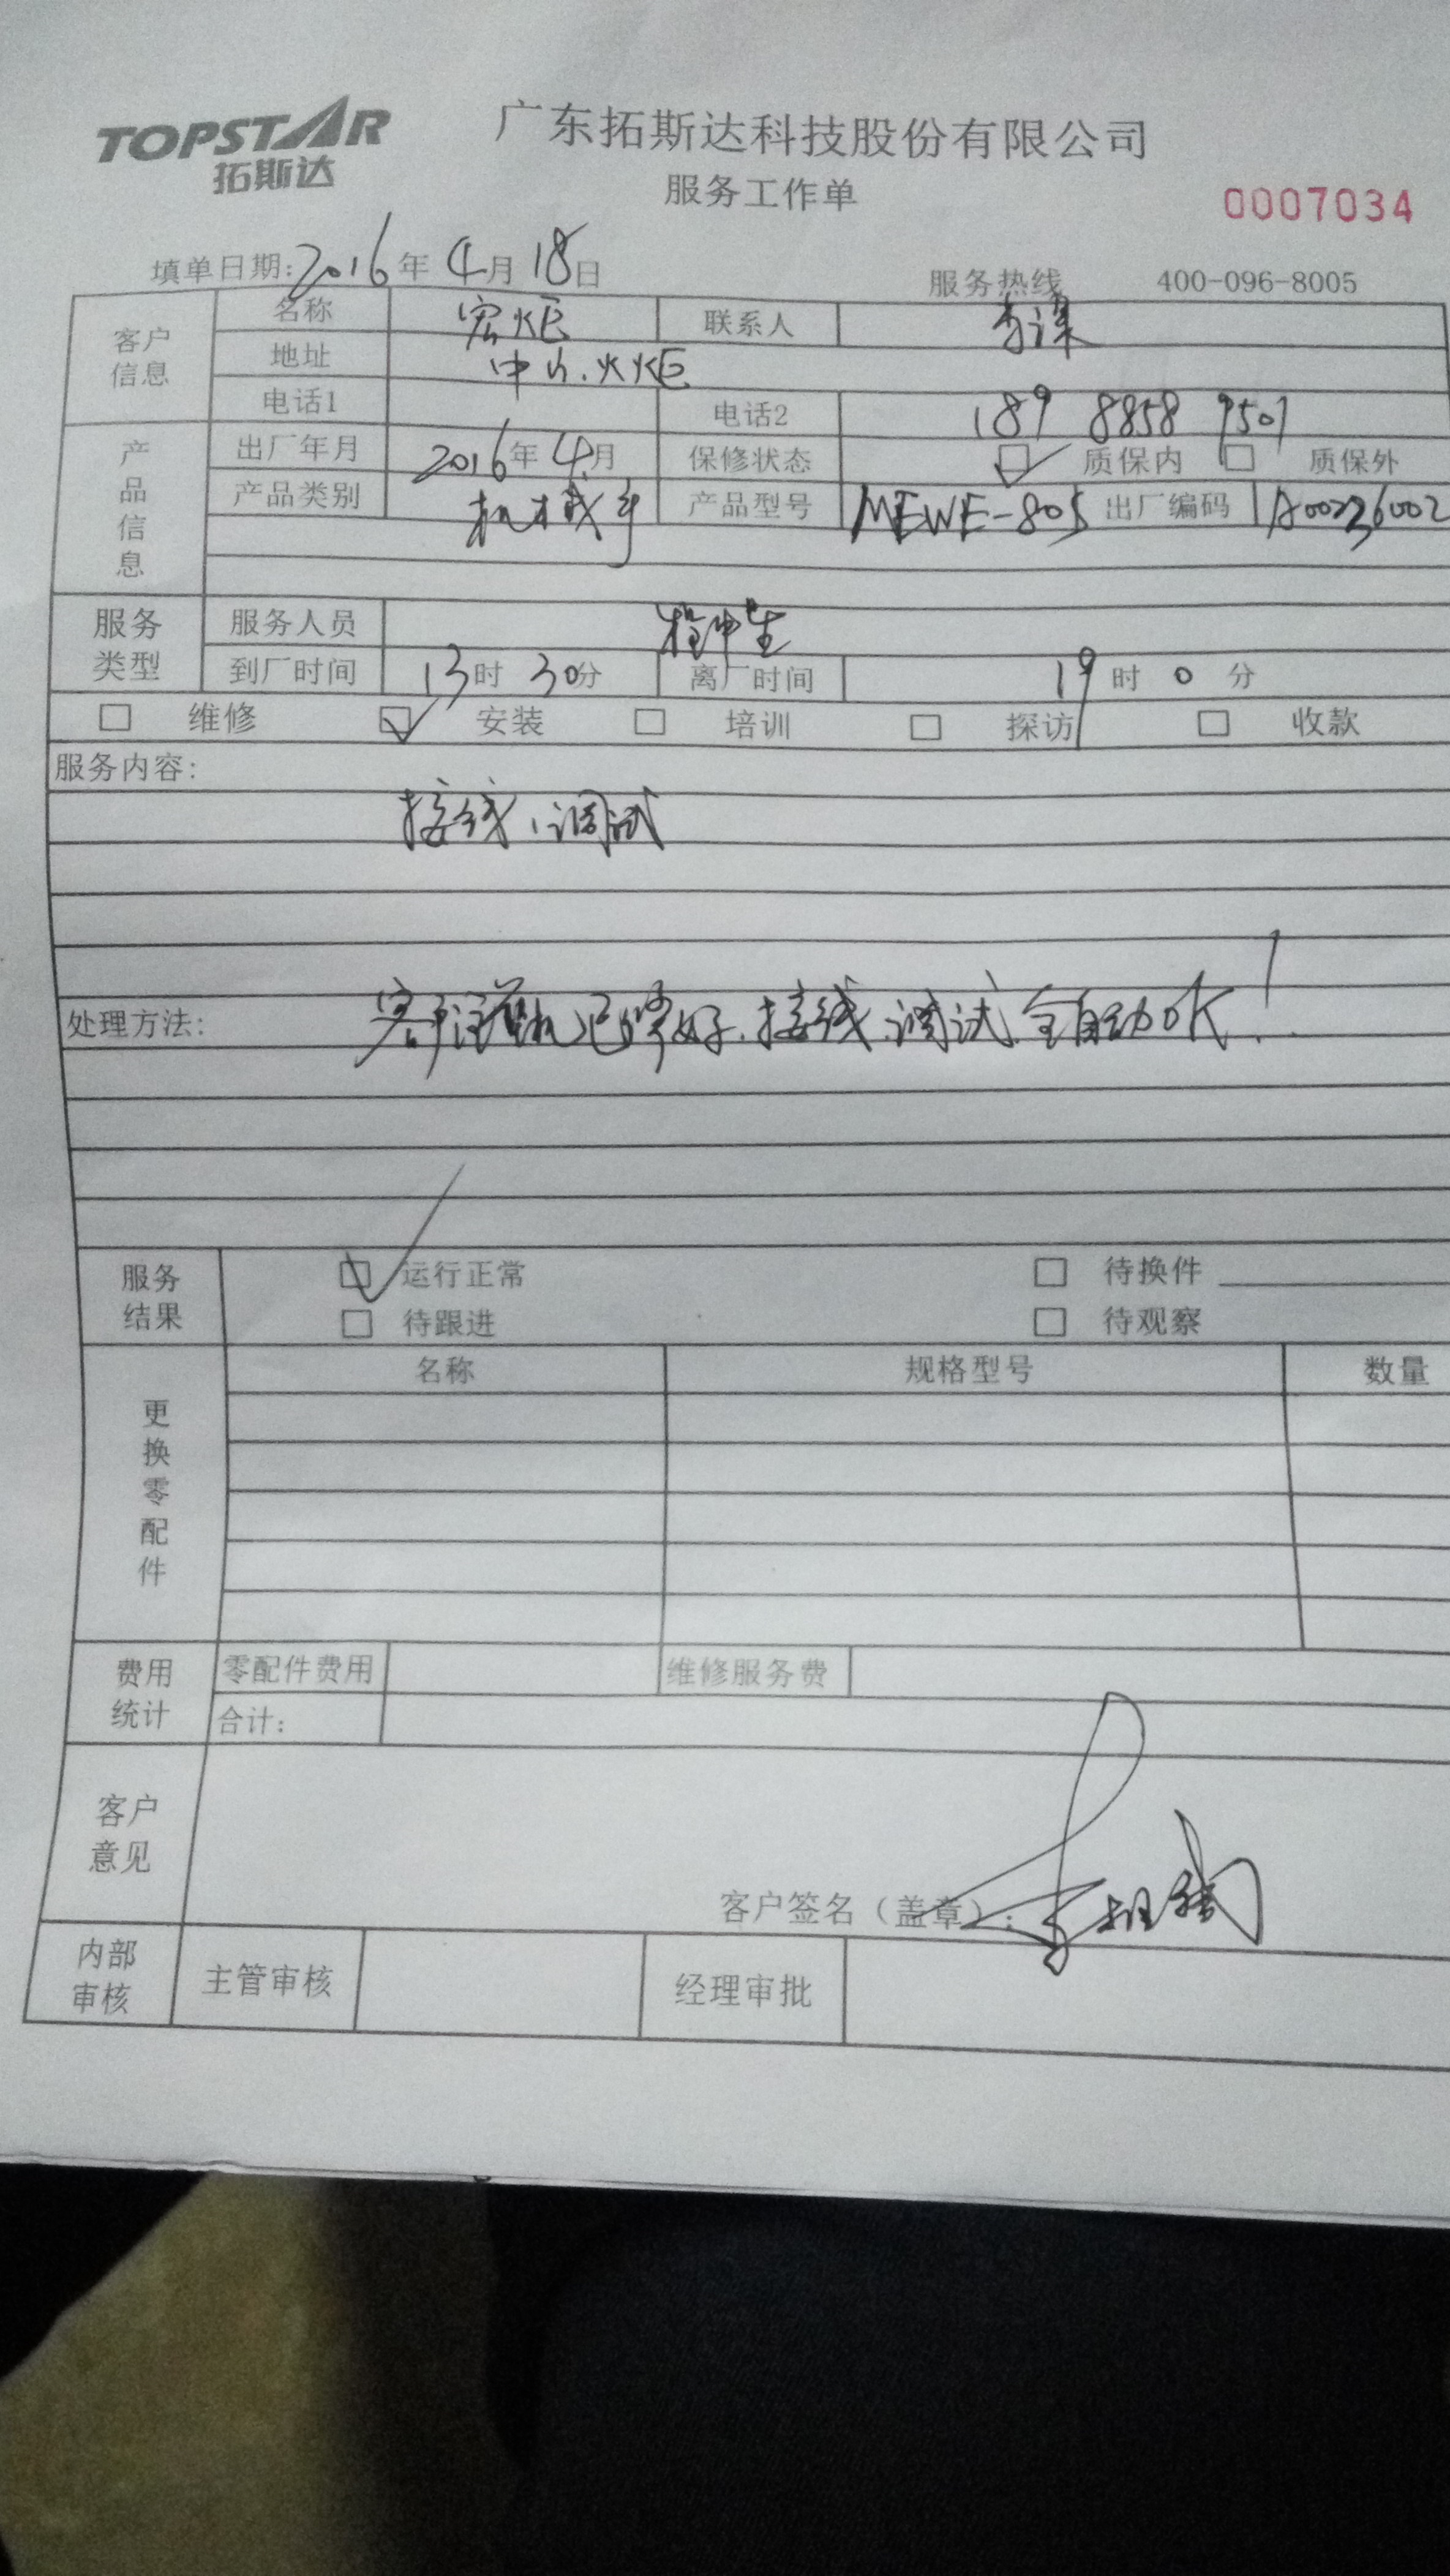 TOPSTAR
拓斯达
广东拓斯达科技股份有限公司
服务工作单
0007034
填单日期:2016年4月18日
服务热线 400-096-8005
客户信息
名称 宏炬 联系人 李课
地址 中山.火炬
电话1 电话2 189 8858 9507
产品信息
出厂年月 2016年4月 保修状态 ☑ 质保内 □ 质保外
产品类别 机械手 产品型号 MEWE-805 出厂编码 A00236002
服务类型
服务人员
到厂时间 13时30分 离厂时间 19时0分
□ 维修 ☑ 安装 □ 培训 □ 探访 □ 收款
服务内容:
接线、调试
处理方法: 客户注塑机已修好.接线.调试.全自动OK!
服务结果
☑ 运行正常 □ 待换件
□ 待跟进 □ 待观察
更换零配件
名称 规格型号 数量
费用统计
零配件费用 维修服务费
合计:
客户意见
客户签名（盖章）:
内部审核 主管审核 经理审批